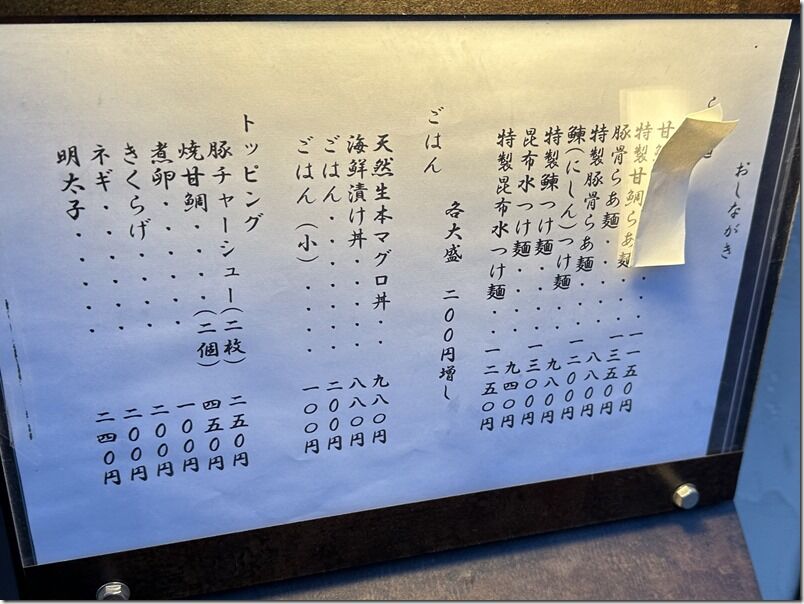 おしながき
甘 ・・一一五〇円
特製甘鯛らあ麺・・一三五〇円
豚骨らあ麺・・・八八〇円
特製豚骨らあ麺・・一二〇〇円
鰊(にしん)つけ麺・九八〇円
特製鰊つけ麺・・・一三〇〇円
昆布水つけ麺・・・九四〇円
特製昆布水つけ麺・・一二五〇円
各大盛 二〇〇円増し
ごはん
天然生本マグロ丼・・九八〇円
海鮮漬け丼・・・・八八〇円
ごはん・・・・・・二〇〇円
ごはん(小)・・・・一〇〇円
トッピング
豚チャーシュー(二枚)二五〇円
焼甘鯛・・・・(二個)四五〇円
煮卵・・・・・・一〇〇円
きくらげ・・・・二〇〇円
ネギ・・・・・・二〇〇円
明太子・・・・・二四〇円